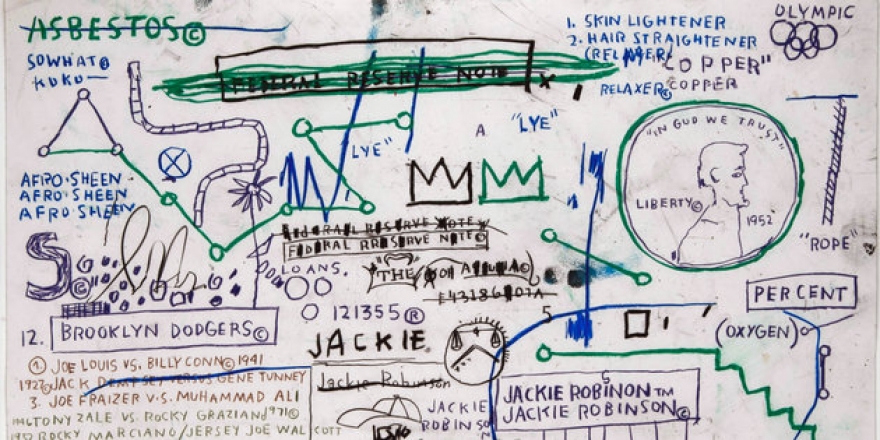 ASBESTOS©
SOWHAT©
KOKO—
FEDERAL RESERVE NOTE
X
1. SKIN LIGHTENER
2. HAIR STRAIGHTENER
(RELAXER)
COPPER"
RELAXER©
COPPER
OLYMPIC
"LYE"
A "LYE"
"IN GOD WE TRUST"
LIBERTY©
1952
"ROPE"
AFRO·SHEEN
AFRO·SHEEN
AFRO·SHEEN
FEDERAL RESERVE NOTE
FEDERAL RESERVE NOTE©
LOANS.
"THE
121355®
S©
12. BROOKLYN DODGERS©
JACKIE
Jackie Robinson
JACKIE
ROBINSO
5
PERCENT
(OXYGEN)
JACKIE ROBINON TM
JACKIE ROBINSON©
① JOE LOUIS VS. BILLY CONN© 1941
1927 JACK DEMPSEY VERSUS GENE TUNNEY
3. JOE FRAIZER V.S. MUHAMMAD ALI
TONY ZALE VS ROCKY GRAZIANO
1952 ROCKY MARCIANO/JERSEY JOE WALCOTT